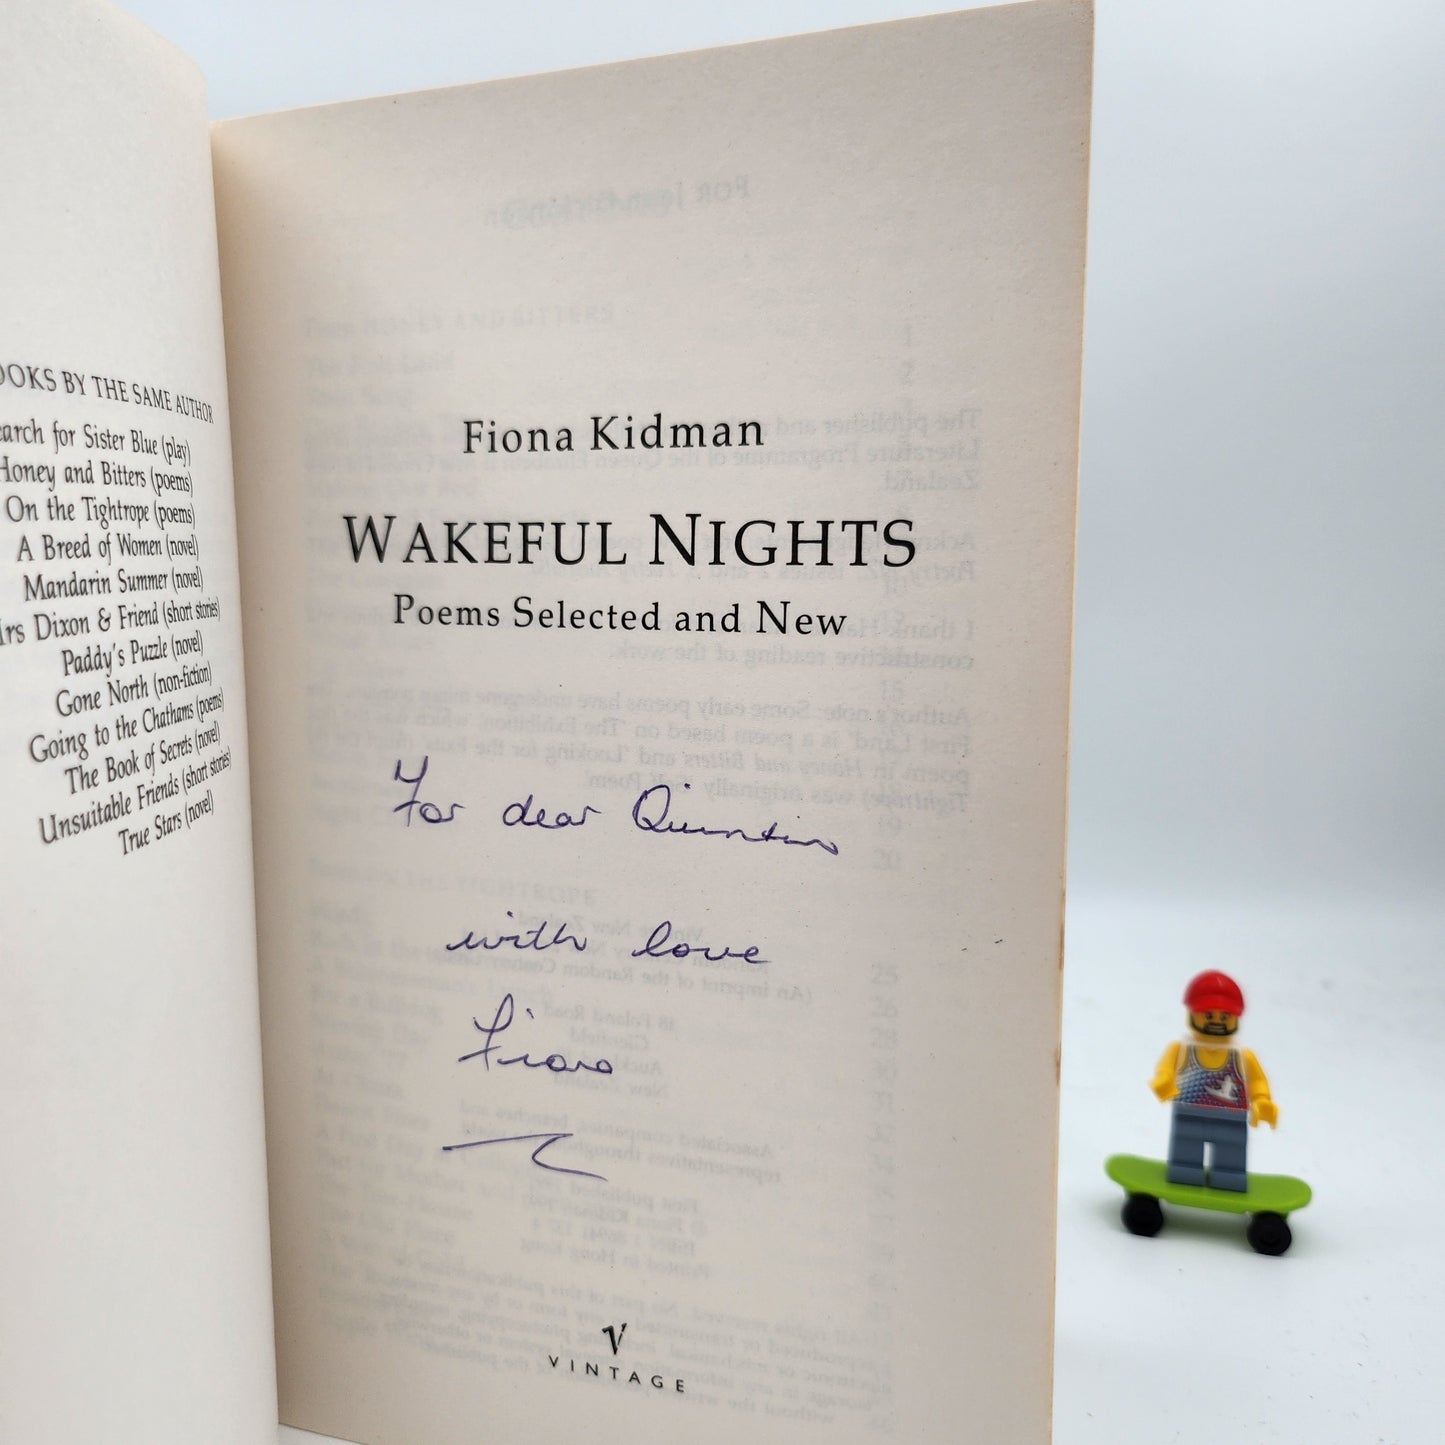 OOKS BY THE SAME AUTHOR
earch for Sister Blue (play)
Honey and Bitters (poems)
On the Tightrope (poems)
A Breed of Women (novel)
Mandarin Summer (novel)
Mrs Dixon & Friend (short stories)
Paddy's Puzzle (novel)
Gone North (non-fiction)
Going to the Chathams (poems)
The Book of Secrets (novel)
Unsuitable Friends (short stories)
True Stars (novel)
Fiona Kidman
WAKEFUL NIGHTS
Poems Selected and New
For dear Quentin
with love
Fiona
V
VINTAGE